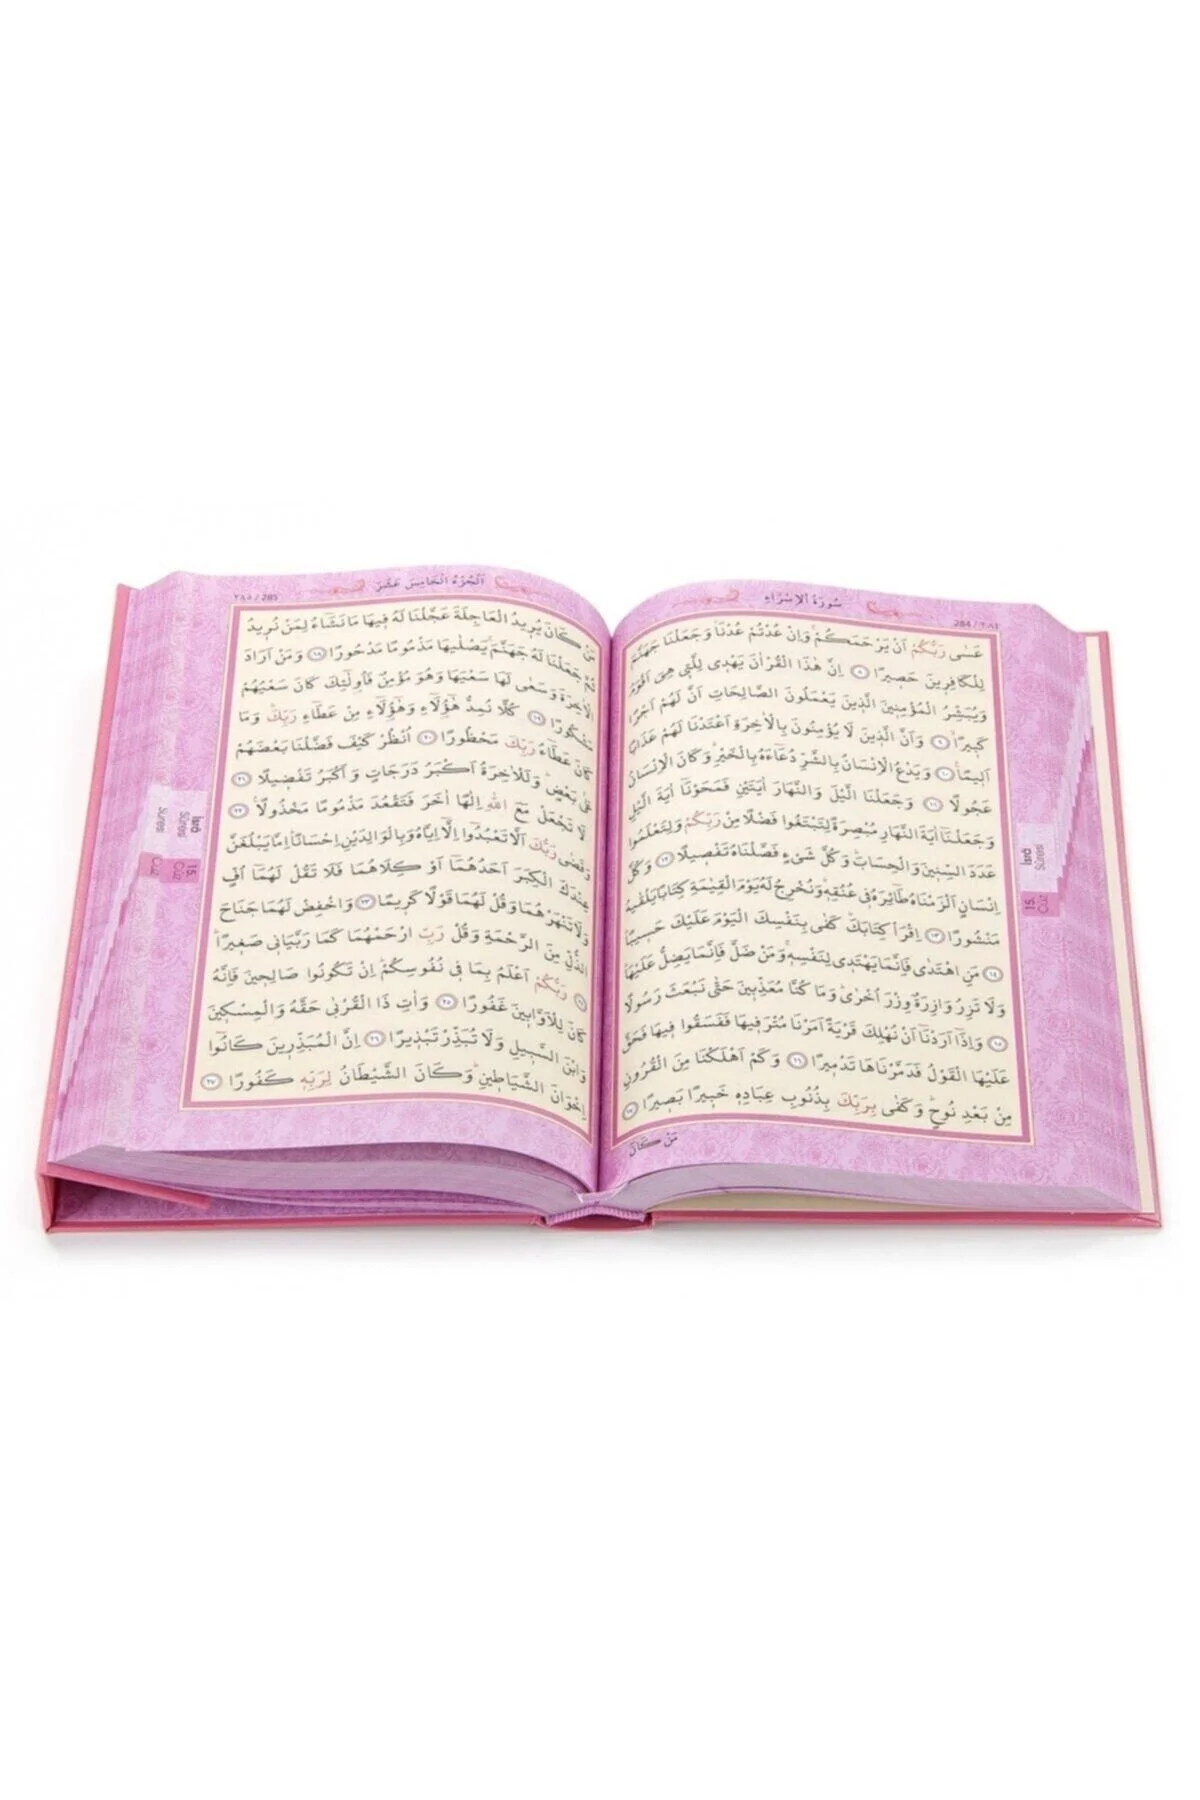 سُورَةُ الْاِسْرَاءِ
284 / ٢٨٤
عَسٰى رَبُّكُمْ اَنْ يَرْحَمَكُمْ وَاِنْ عُدْتُمْ عُدْنَا وَجَعَلْنَا جَهَنَّمَ
لِلْكَافِرِينَ حَصِيرًا ٨ اِنَّ هٰذَا الْقُرْاٰنَ يَهْدِى لِلَّتِى هِىَ اَقْوَمُ
وَيُبَشِّرُ الْمُؤْمِنِينَ الَّذِينَ يَعْمَلُونَ الصَّالِحَاتِ اَنَّ لَهُمْ اَجْرًا
كَبِيرًا ٩ وَاَنَّ الَّذِينَ لَا يُؤْمِنُونَ بِالْاٰخِرَةِ اَعْتَدْنَا لَهُمْ عَذَابًا
اَلِيمًا ١٠ وَيَدْعُ الْاِنْسَانُ بِالشَّرِّ دُعَاءَهُ بِالْخَيْرِ وَكَانَ الْاِنْسَانُ
عَجُولًا ١١ وَجَعَلْنَا الَّيْلَ وَالنَّهَارَ اٰيَتَيْنِ فَمَحَوْنَا اٰيَةَ الَّيْلِ
وَجَعَلْنَا اٰيَةَ النَّهَارِ مُبْصِرَةً لِتَبْتَغُوا فَضْلًا مِنْ رَبِّكُمْ وَلِتَعْلَمُوا
عَدَدَ السِّنِينَ وَالْحِسَابَ وَكُلَّ شَىْءٍ فَصَّلْنَاهُ تَفْصِيلًا ١٢ وَكُلَّ
اِنْسَانٍ اَلْزَمْنَاهُ طَائِرَهُ فِى عُنُقِهِ وَنُخْرِجُ لَهُ يَوْمَ الْقِيٰمَةِ كِتَابًا يَلْقٰيهُ
مَنْشُورًا ١٣ اِقْرَاْ كِتَابَكَ كَفٰى بِنَفْسِكَ الْيَوْمَ عَلَيْكَ حَسِيبًا
١٤ مَنِ اهْتَدٰى فَاِنَّمَا يَهْتَدِى لِنَفْسِهِ وَمَنْ ضَلَّ فَاِنَّمَا يَضِلُّ عَلَيْهَا
وَلَا تَزِرُ وَازِرَةٌ وِزْرَ اُخْرٰى وَمَا كُنَّا مُعَذِّبِينَ حَتّٰى نَبْعَثَ رَسُولًا
١٥ وَاِذَا اَرَدْنَا اَنْ نُهْلِكَ قَرْيَةً اَمَرْنَا مُتْرَفِيهَا فَفَسَقُوا فِيهَا فَحَقَّ
عَلَيْهَا الْقَوْلُ فَدَمَّرْنَاهَا تَدْمِيرًا ١٦ وَكَمْ اَهْلَكْنَا مِنَ الْقُرُونِ
مِنْ بَعْدِ نُوحٍ وَكَفٰى بِرَبِّكَ بِذُنُوبِ عِبَادِهِ خَبِيرًا بَصِيرًا ١٧
مَنْ كَانَ
İsrâ
Sûresi
15.
Cüz
اَلْجُزْءُ الْخَامِسَ عَشَرَ
٢٨٥ / 285
مَنْ كَانَ يُرِيدُ الْعَاجِلَةَ عَجَّلْنَا لَهُ فِيهَا مَا نَشَاءُ لِمَنْ نُرِيدُ
ثُمَّ جَعَلْنَا لَهُ جَهَنَّمَ يَصْلٰيهَا مَذْمُومًا مَدْحُورًا ١٨ وَمَنْ اَرَادَ
الْاٰخِرَةَ وَسَعٰى لَهَا سَعْيَهَا وَهُوَ مُؤْمِنٌ فَاُولٰئِكَ كَانَ سَعْيُهُمْ
مَشْكُورًا ١٩ كُلًّا نُمِدُّ هٰؤُلَاءِ وَهٰؤُلَاءِ مِنْ عَطَاءِ رَبِّكَ وَمَا
كَانَ عَطَاءُ رَبِّكَ مَحْظُورًا ٢٠ اُنْظُرْ كَيْفَ فَضَّلْنَا بَعْضَهُمْ
عَلٰى بَعْضٍ وَلَلْاٰخِرَةُ اَكْبَرُ دَرَجَاتٍ وَاَكْبَرُ تَفْضِيلًا ٢١
لَا تَجْعَلْ مَعَ اللهِ اِلٰهًا اٰخَرَ فَتَقْعُدَ مَذْمُومًا مَخْذُولًا ٢٢
وَقَضٰى رَبُّكَ اَلَّا تَعْبُدُوا اِلَّا اِيَّاهُ وَبِالْوَالِدَيْنِ اِحْسَانًا اِمَّا يَبْلُغَنَّ
عِنْدَكَ الْكِبَرَ اَحَدُهُمَا اَوْ كِلَاهُمَا فَلَا تَقُلْ لَهُمَا اُفٍّ
وَلَا تَنْهَرْهُمَا وَقُلْ لَهُمَا قَوْلًا كَرِيمًا ٢٣ وَاخْفِضْ لَهُمَا جَنَاحَ
الذُّلِّ مِنَ الرَّحْمَةِ وَقُلْ رَبِّ ارْحَمْهُمَا كَمَا رَبَّيَانِى صَغِيرًا
٢٤ رَبُّكُمْ اَعْلَمُ بِمَا فِى نُفُوسِكُمْ اِنْ تَكُونُوا صَالِحِينَ فَاِنَّهُ
كَانَ لِلْاَوَّابِينَ غَفُورًا ٢٥ وَاٰتِ ذَا الْقُرْبٰى حَقَّهُ وَالْمِسْكِينَ
وَابْنَ السَّبِيلِ وَلَا تُبَذِّرْ تَبْذِيرًا ٢٦ اِنَّ الْمُبَذِّرِينَ كَانُوا
اِخْوَانَ الشَّيَاطِينِ وَكَانَ الشَّيْطَانُ لِرَبِّهِ كَفُورًا ٢٧
İsrâ
Sûresi
Sûresi
15.
Cüz
Cüz